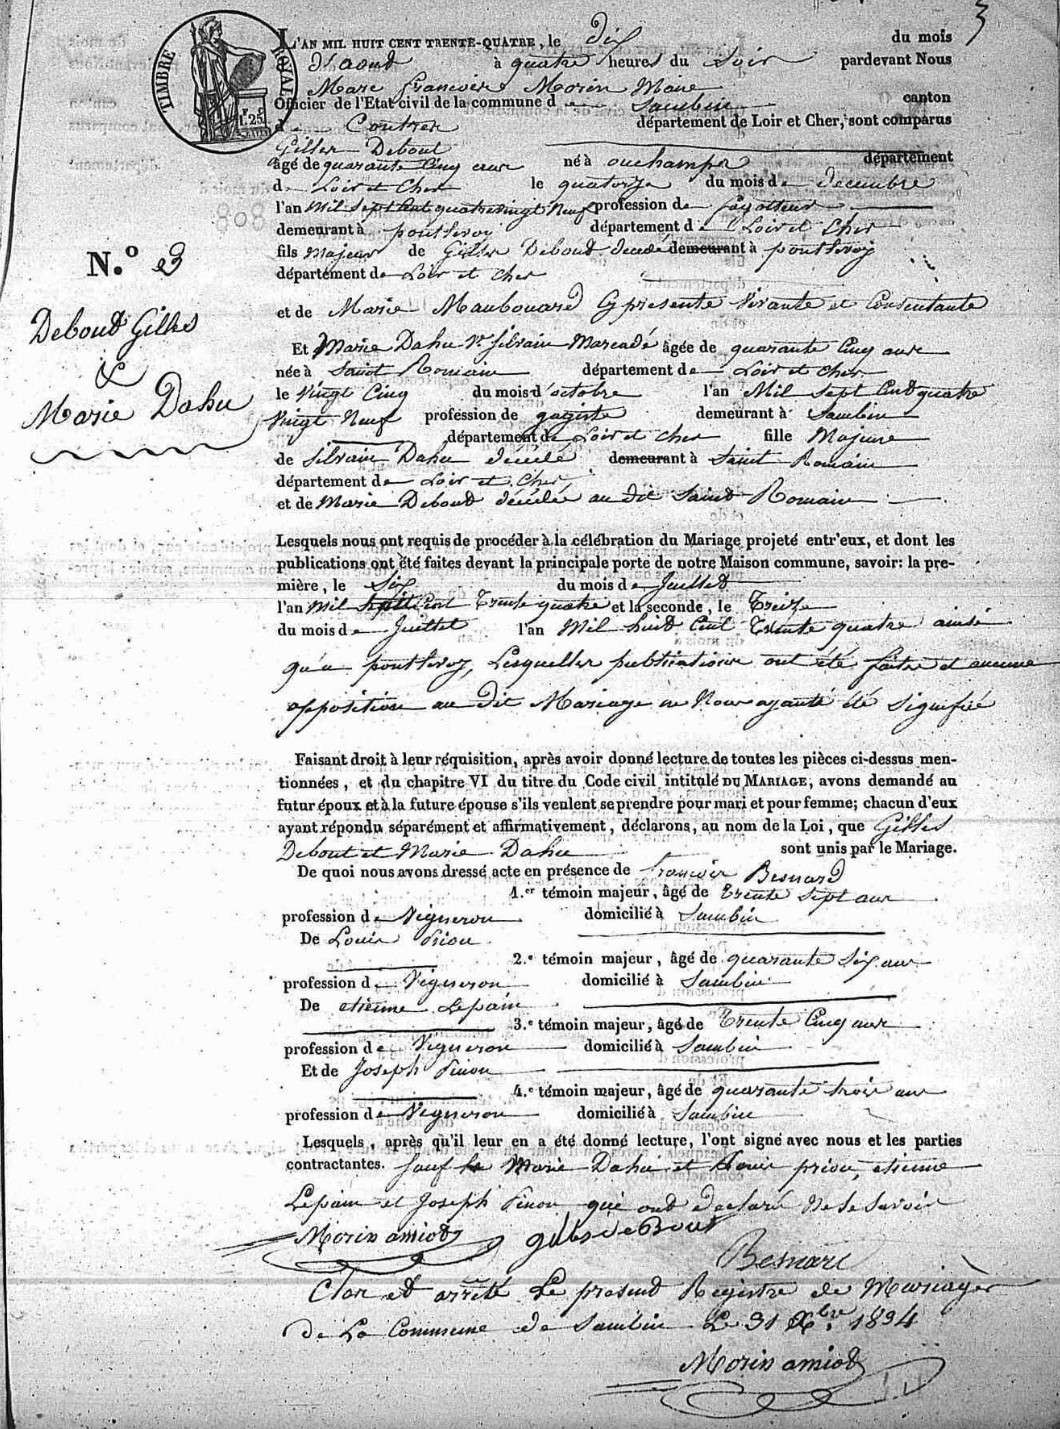 3
TIMBRE ROYAL
1F.25C
L'AN MIL HUIT CENT TRENTE-QUATRE, le dix du mois
d'aout à quatre heures du Soir pardevant Nous
Marc francois Morin Maire
Officier de l'Etat civil de la commune d e Sambin canton
de Contres département de Loir et Cher, sont comparus
Gilles Debout
âgé de quarante Cinq ans né à ouchamps département
d e Loir et Cher le quatorze du mois de decembre
l'an Mil Sept Cent quatrevingt Neuf profession de
demeurant à pontlevoy département de Loir et Cher
fils Majeur de Gilles Debout decedé demeurant à pontlevoy
département de Loir et Cher
et de Marie Maubouard Cy presente vivante et Consentante
N.º 3
Debout Gilles
&
Marie Dahu
Et Marie Dahu Ve Silvain Marcadé âgée de quarante Cinq ans
née à Saint Romain département de Loir et Cher
le Vingt Cinq du mois d'octobre l'an Mil Sept Cent quatre
Vingt Neuf profession de gagiste demeurant à Sambin
département de Loir et Cher fille Majeure
de Silvain Dahu décédé demeurant à Saint Romain
département de Loir et Cher
et de Marie Debout décédée au dit Saint Romain
Lesquels nous ont requis de procéder à la célébration du Mariage projeté entr'eux, et dont les
publications ont été faites devant la principale porte de notre Maison commune, savoir: la pre-
mière, le Six du mois de Juillet
l'an Mil huit Cent Trente quatre et la seconde, le Treize
du mois de Juillet l'an Mil huit Cent Trente quatre ainsi
qu'a pontlevoy, Lesquelles publications ont été faites et aucune
opposition au dit Mariage ne Nous ayant été Signifiée
Faisant droit à leur réquisition, après avoir donné lecture de toutes les pièces ci-dessus men-
tionnées, et du chapitre VI du titre du Code civil intitulé DU MARIAGE, avons demandé au
futur époux et à la future épouse s'ils veulent se prendre pour mari et pour femme; chacun d'eux
ayant répondu séparément et affirmativement, déclarons, au nom de la Loi, que Gilles
Debout et Marie Dahu sont unis par le Mariage.
De quoi nous avons dressé acte en présence de francois Besnard
1.er témoin majeur, âgé de trente Sept ans
profession de Vigneron domicilié à Sambin
De Louis Priou
2.e témoin majeur, âgé de quarante Six ans
profession de Vigneron domicilié à Sambin
De etienne Lepain
3.e témoin majeur, âgé de Trente Cinq ans
profession de Vigneron domicilié à Sambin
Et de Joseph Pinon
4.e témoin majeur, âgé de quarante trois ans
profession de Vigneron domicilié à Sambin
Lesquels, après qu'il leur en a été donné lecture, l'ont signé avec nous et les parties
contractantes. Sauf la Marie Dahu et Louis priou, etienne
Lepain et Joseph Pinon qui ont declaré Ne le Savoir
Morin amiot gilles de Bout
Besnard
Clos et arrêté Le present Registre de Mariages
de La Commune de Sambin Le 31 Xbre 1834
Morin amiot